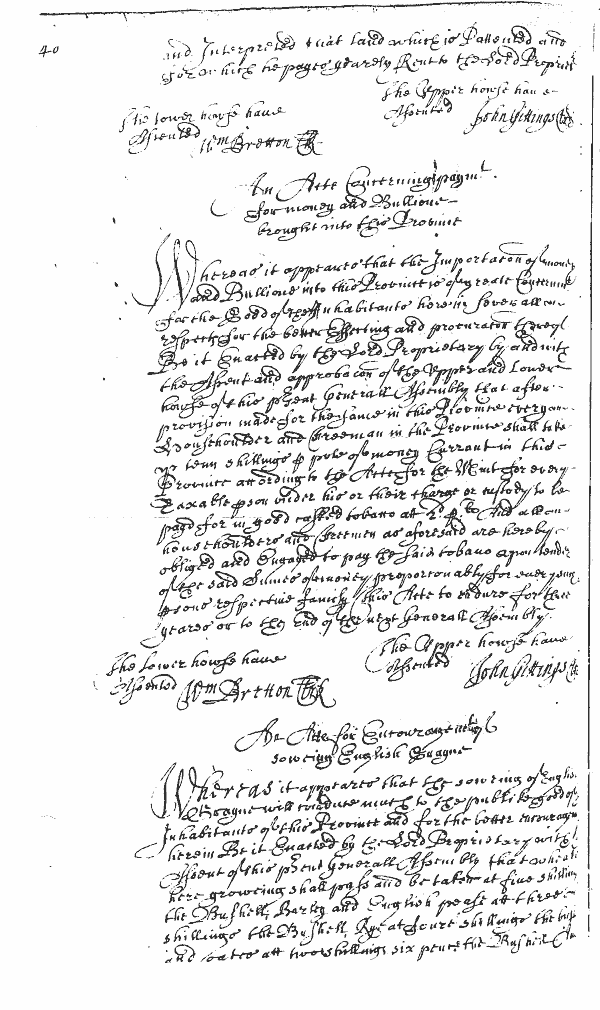 40
and Interpreted that land which is Pattented and
for which he payes yearely Rent to the Lord Propriet
The Upper howse have
The lower howse have
Assented John Gittings Clk
Assented Wm Bretton Clk
An Acte Concerning paymt
for money and Bullione
brought into this Province
Whereas it appeares that the Importacon of money
and Bullione into this Province is of greate Concernmt
for the Good of the Inhabitants herein in severall
respects for the better Effecting and procuracon thereof
Be it Enacted by the Lord Proprietary by and with
the Assent and approbacon of the Upper and Lower
howse of this psent Generall Assembly that after
provision made for the same in this Province every
Househoulder and Freeman in the Province shall take
up tenn shillings p pole of money Currant in this
Province according to the Acte for the Mint for every
Taxable pson under his or their charge or custody to be
payd for in good casked tobacco at 2d p lb And all
househoulders and Freemen as aforesaid are hereby
obliged and Engaged to pay the said tobacco upon tender
of the said Summes of money proporconably for every
psons respective family this Acte to endure for three
yeares or to the End of the next Generall Assembly
The Upper howse have
The Lower howse have
Assented John Gittings Clk
Assented Wm Bretton Clk
An Acte for Encouragemt of
sowcing English Grayne
Whereas it appeares that the sowcing of English
Grayne will conduce much to the publike good of
Inhabitants of this Province and for the better encouragmt
herein Be it Enacted by the Lord Proprietary with
Assent of this psent Generall Assembly that wheate
here groweing shall passe and be taken at five shillings
the Bushell, Barley and English pease att three
shillings the Bushell, Rye at foure shillings the bush
and oates att two shillings six pence the Bushell